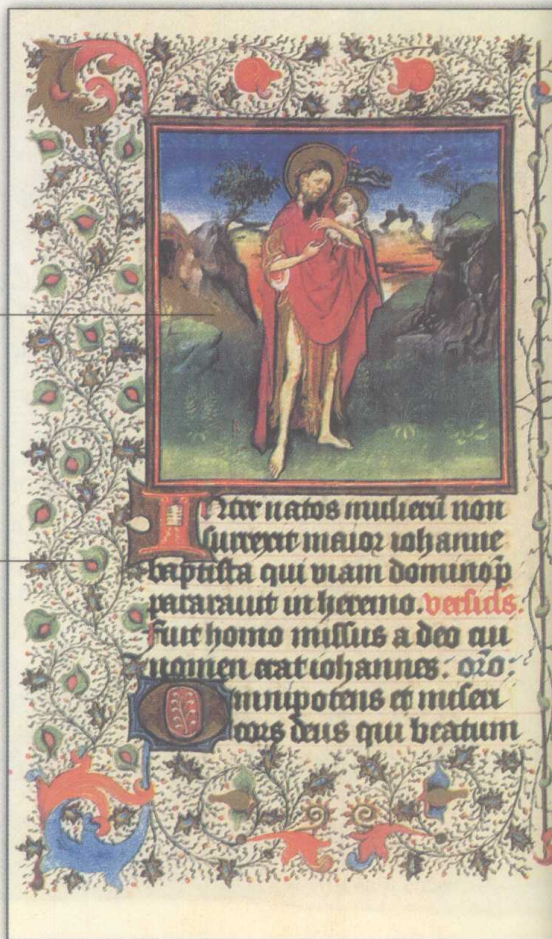 Inter natos mulierū non
surrexit maior iohanne
baptista qui viam domino p
pararauit in heremo. versics.
Fuit homo missus a deo cui
nomen erat iohannes. oro.
Omnipotens et miseri
cors deus qui beatum